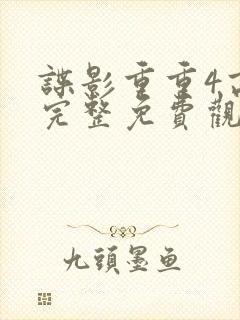 諜影重重4高
完整免費觀
九頭墨鱼